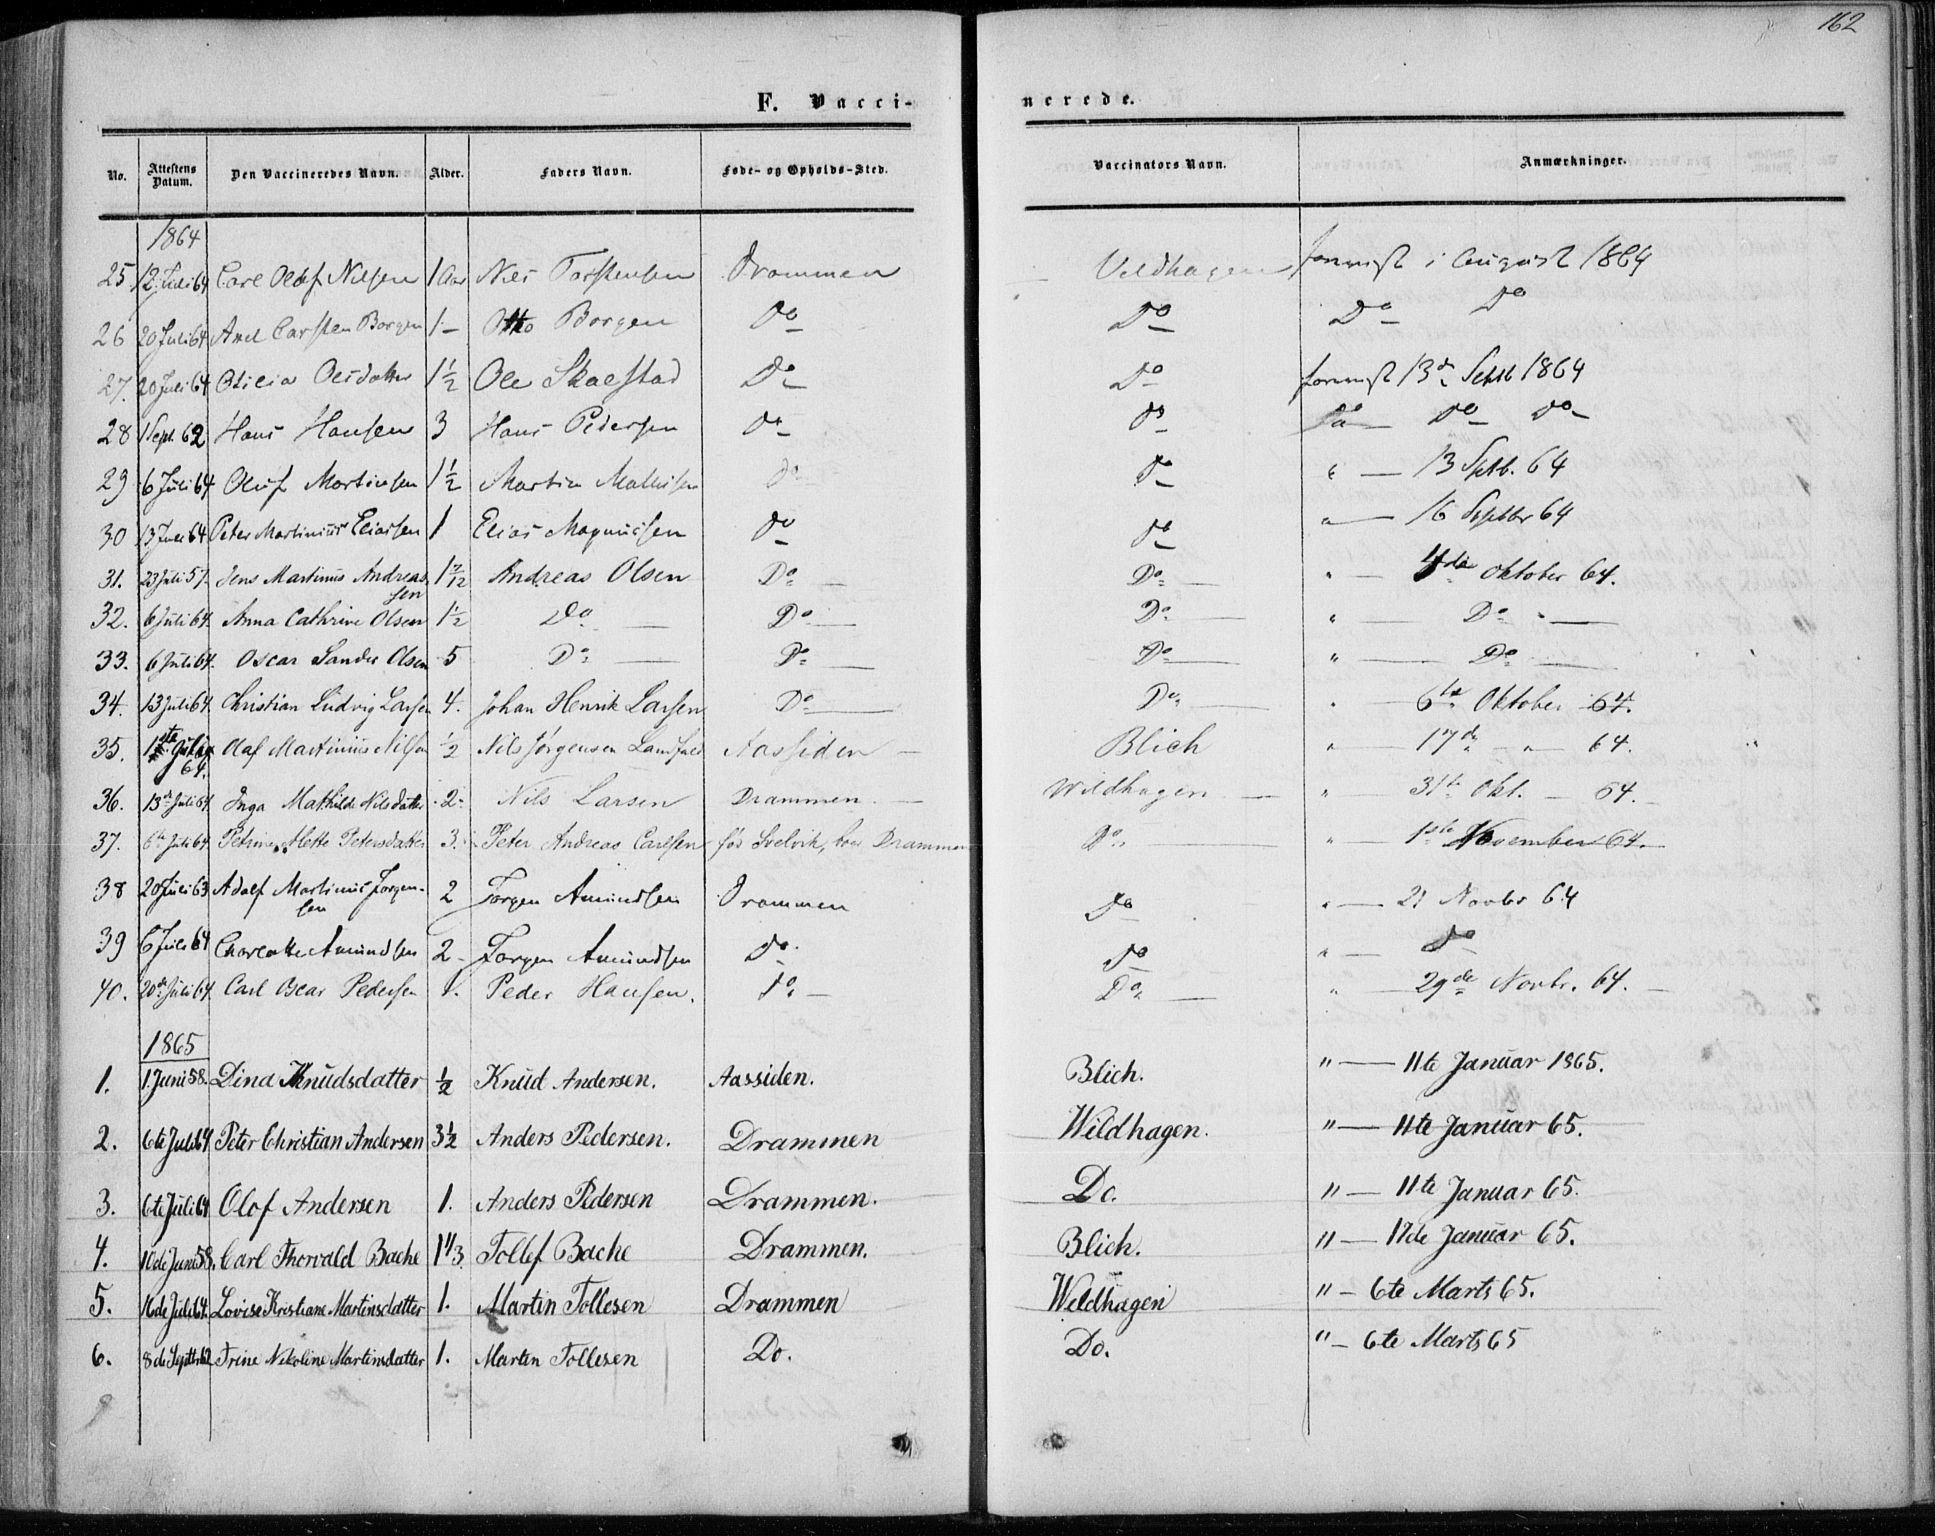 162
F. Vacci- nerede.
No. Attestens Datum. Den Vaccineredes Navn. Alder. Faders Navn. Føde- og Opholds-Sted. Vaccinators Navn. Anmærkninger.
1864
25 12 Juli 64 Carl Olaf Nilsen 1 Aar Nils Torstensen Drammen Vildhagen forevist i August 1864
26 20 Juli 64 Axel Carsten Borgen 1 - Otto Borgen Do Do Do Do
27. 20 Juli 64 Olsdatter 1½ Ole Skalstad Do Do forevist 13de Septb 1864
28 1 Sept. 62 Hans Hansen 3 Hans Pedersen Do Do Do Do Do
29 6 Juli 64 Oluf Martinsen 1½ Martin Mathisen Do Do " — 13 Sptb. 64
30 13 Juli 64 Peter Martinius Eliassen 1 Elias Magnussen Do Do " — 16 Septbr 64
31. 23 Juli 57. Jens Martinus Andreas- 1 7/12 Andreas Olsen Do — Do — " — 4de Oktober 64.
sen
32. 6 Juli 64. Anna Cathrine Olsen 1½ Do — Do — Do — " — Do —
33. 6 Juli 64. Oscar Sander Olsen 5 Do — Do — Do — " — Do —
34. 13 Juli 64. Christian Ludvig Larsen 4. Johan Henrik Larsen Do — Do — " — 6te Oktober 64.
35. Olaf Martinius Nilsen ½ Nils Jørgensen Aassiden — Blich " — 17de — " — 64.
64.
36. 13de Juli 64. Inga Mathilde Nilsdatter 2 Nils Larsen Drammen. — Wildhagen — " — 31te Okt. — 64.
37. 6te Juli 64. Petrine Mette Petersdatter 3. Peter Andreas Carlsen fød Svelvik, boer Drammen Do. — " — 1ste November 64.
38 20 Juli 63 Adolf Martinus Jørgen- 2 Jørgen Amundsen Drammen Do " — 21 Novbr 64
sen
39 6 Juli 64 Charlotte Amundsen 2 - Jørgen Amundsen Do Do " — Do
40. 20de Juli 64. Carl Oscar Pedersen 1. Peder Hansen. Do — Do — " — 29de Novbr. 64. —
1865
1. 1. Juni 58. Dina Knudsdatter ½ Knud Andersen. Aassiden. Blich. " — 11te Januar 1865.
2. 6te Juli 64 Peter Christian Andersen 3½ Anders Pedersen. Drammen Wildhagen. " — 11te Januar 65.
3. 6te Juli 64 Olof Andersen 1. Anders Pedersen Drammen. Do. " — 11te Januar 65.
4. 10de Juni 58. Carl Thorvald Bache Tollef Bache Drammen. Blich. " — 17de Januar 65.
5. 16de Juli 64. Lovise Kristiane Martinsdatter 1. Martin Tollesen Drammen Wildhagen " — 6te Marts 65.
6. 8de Septbr 62 Trine Nikoline Martinsdatter 1. Martin Tollesen Do. Do. " — 6te Marts 65